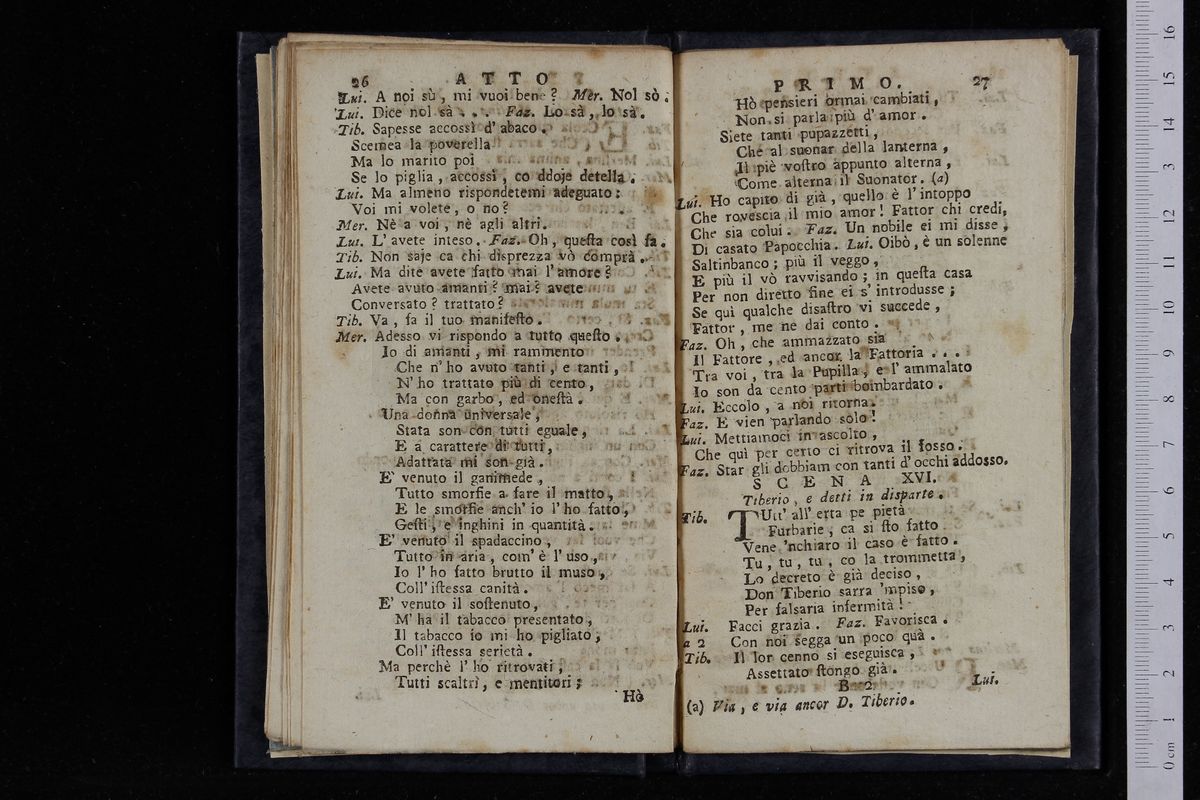 26 ATTO
Lui. A noi sù, mi vuoi bene? Mer. Nol sò.
Lui. Dice nol sà . . . Faz. Lo sà, lo sà.
Tib. Sapesse accossì d' abaco.
Scemea la poverella
Ma lo marito poi
Se lo piglia, accossì, co ddoje detella.
Lui. Ma almeno rispondetemi adeguato:
Voi mi volete, o no?
Mer. Nè a voi, nè agli altri.
Lui. L' avete inteso. Faz. Oh, questa così fa.
Tib. Non saje ca chi disprezza vò comprà.
Lui. Ma dite avete fatto mai l'amore?
Avete avuto amanti? mai? avete
Conversato? trattato?
Tib. Va, fa il tuo manifesto.
Mer. Adesso vi rispondo a tutto questo.
Io di amanti, mi rammento
Che n' ho avuto tanti, e tanti,
N' ho trattato più di cento,
Ma con garbo, ed onestà.
Una donna universale,
Stata son con tutti eguale,
E a carattere di tutti,
Adattata mi son già.
E' venuto il ganimede,
Tutto smorfie a fare il matto,
E le smorfie anch' io l' ho fatto,
Gesti, e inghini in quantità.
E' venuto il spadaccino,
Tutto in aria, com' è l' uso,
Io l' ho fatto brutto il muso,
Coll' istessa canità.
E' venuto il sostenuto,
M' ha il tabacco presentato,
Il tabacco io mi ho pigliato,
Coll' istessa serietà.
Ma perchè l' ho ritrovati,
Tutti scaltri, e mentitori;
Hò
PRIMO. 27
Hò pensieri ormai cambiati,
Non si parla più d' amor.
Siete tanti pupazzetti,
Che al suonar della lanterna,
Il piè vostro appunto alterna,
Come alterna il Suonator. (a)
Lui. Ho capito di già, quello è l' intoppo
Che rovescia il mio amor! Fattor chi credi,
Che sia colui. Faz. Un nobile ei mi disse,
Di casato Papocchia. Lui. Oibò, è un solenne
Saltinbanco; più il veggo,
E più il vò ravvisando; in questa casa
Per non diretto fine ei s' introdusse;
Se quì qualche disastro vi succede,
Fattor, me ne dai conto.
Faz. Oh, che ammazzato sia
Il Fattore, ed ancor la Fattoria . . .
Tra voi, tra la Pupilla, e l' ammalato
Io son da cento parti bombardato.
Lui. Eccolo, a noi ritorna.
Faz. E vien parlando solo!
Lui. Mettiamoci in ascolto,
Che quì per certo ci ritrova il fosso.
Faz. Star gli dobbiam con tanti d' occhi addosso.
SCENA XVI.
Tiberio, e detti in disparte.
Tib. TUtt' all' erta pe pietà
Furbarie, ca si sto fatto
Vene 'nchiaro il caso è fatto.
Tu, tu, tu, co la trommetta,
Lo decreto è già deciso,
Don Tiberio sarra 'mpiso,
Per falsaria infermità!
Lui. Facci grazia. Faz. Favorisca.
a 2 Con noi segga un poco quà.
Tib. Il lor cenno si eseguisca,
Assettato stongo già.
B 2 Lui.
(a) Via, e via ancor D. Tiberio.
16
15
14
13
12
11
10
9
8
7
6
5
4
3
2
1
0 cm